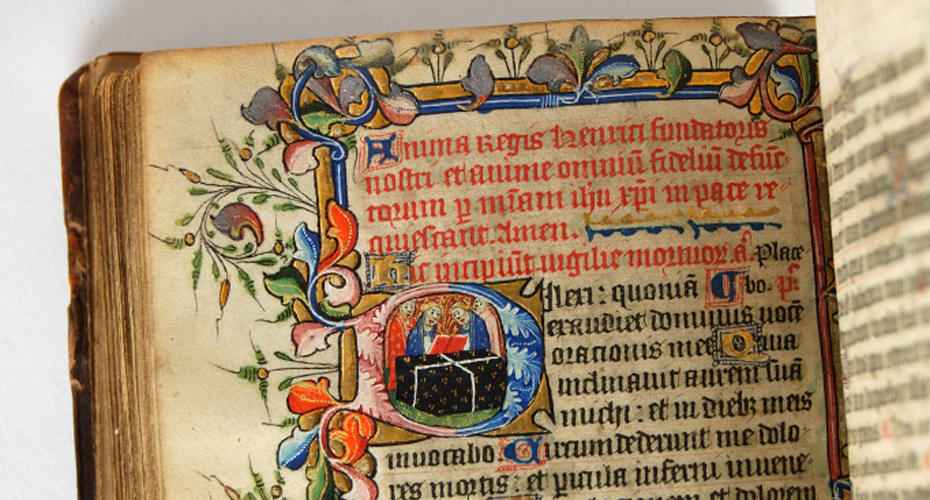 Anima Regis henrici fundatoris
nostri et anime omniū fideliū defūc-
torum p m̄iam ih̄u xp̄i in pace re-
quiescant. Amen.
Hic incipiūt vigilie mortuor. a. Place-
Dileri: quoniā vbo. ps
exaudiet dominus uocē
orationis mee Quia
inclinauit aurem suā
michi: et in dieb; meis
inuocabo Circumdederunt me dolo-
res mortis: et picula inferni inuene-
et dolorem